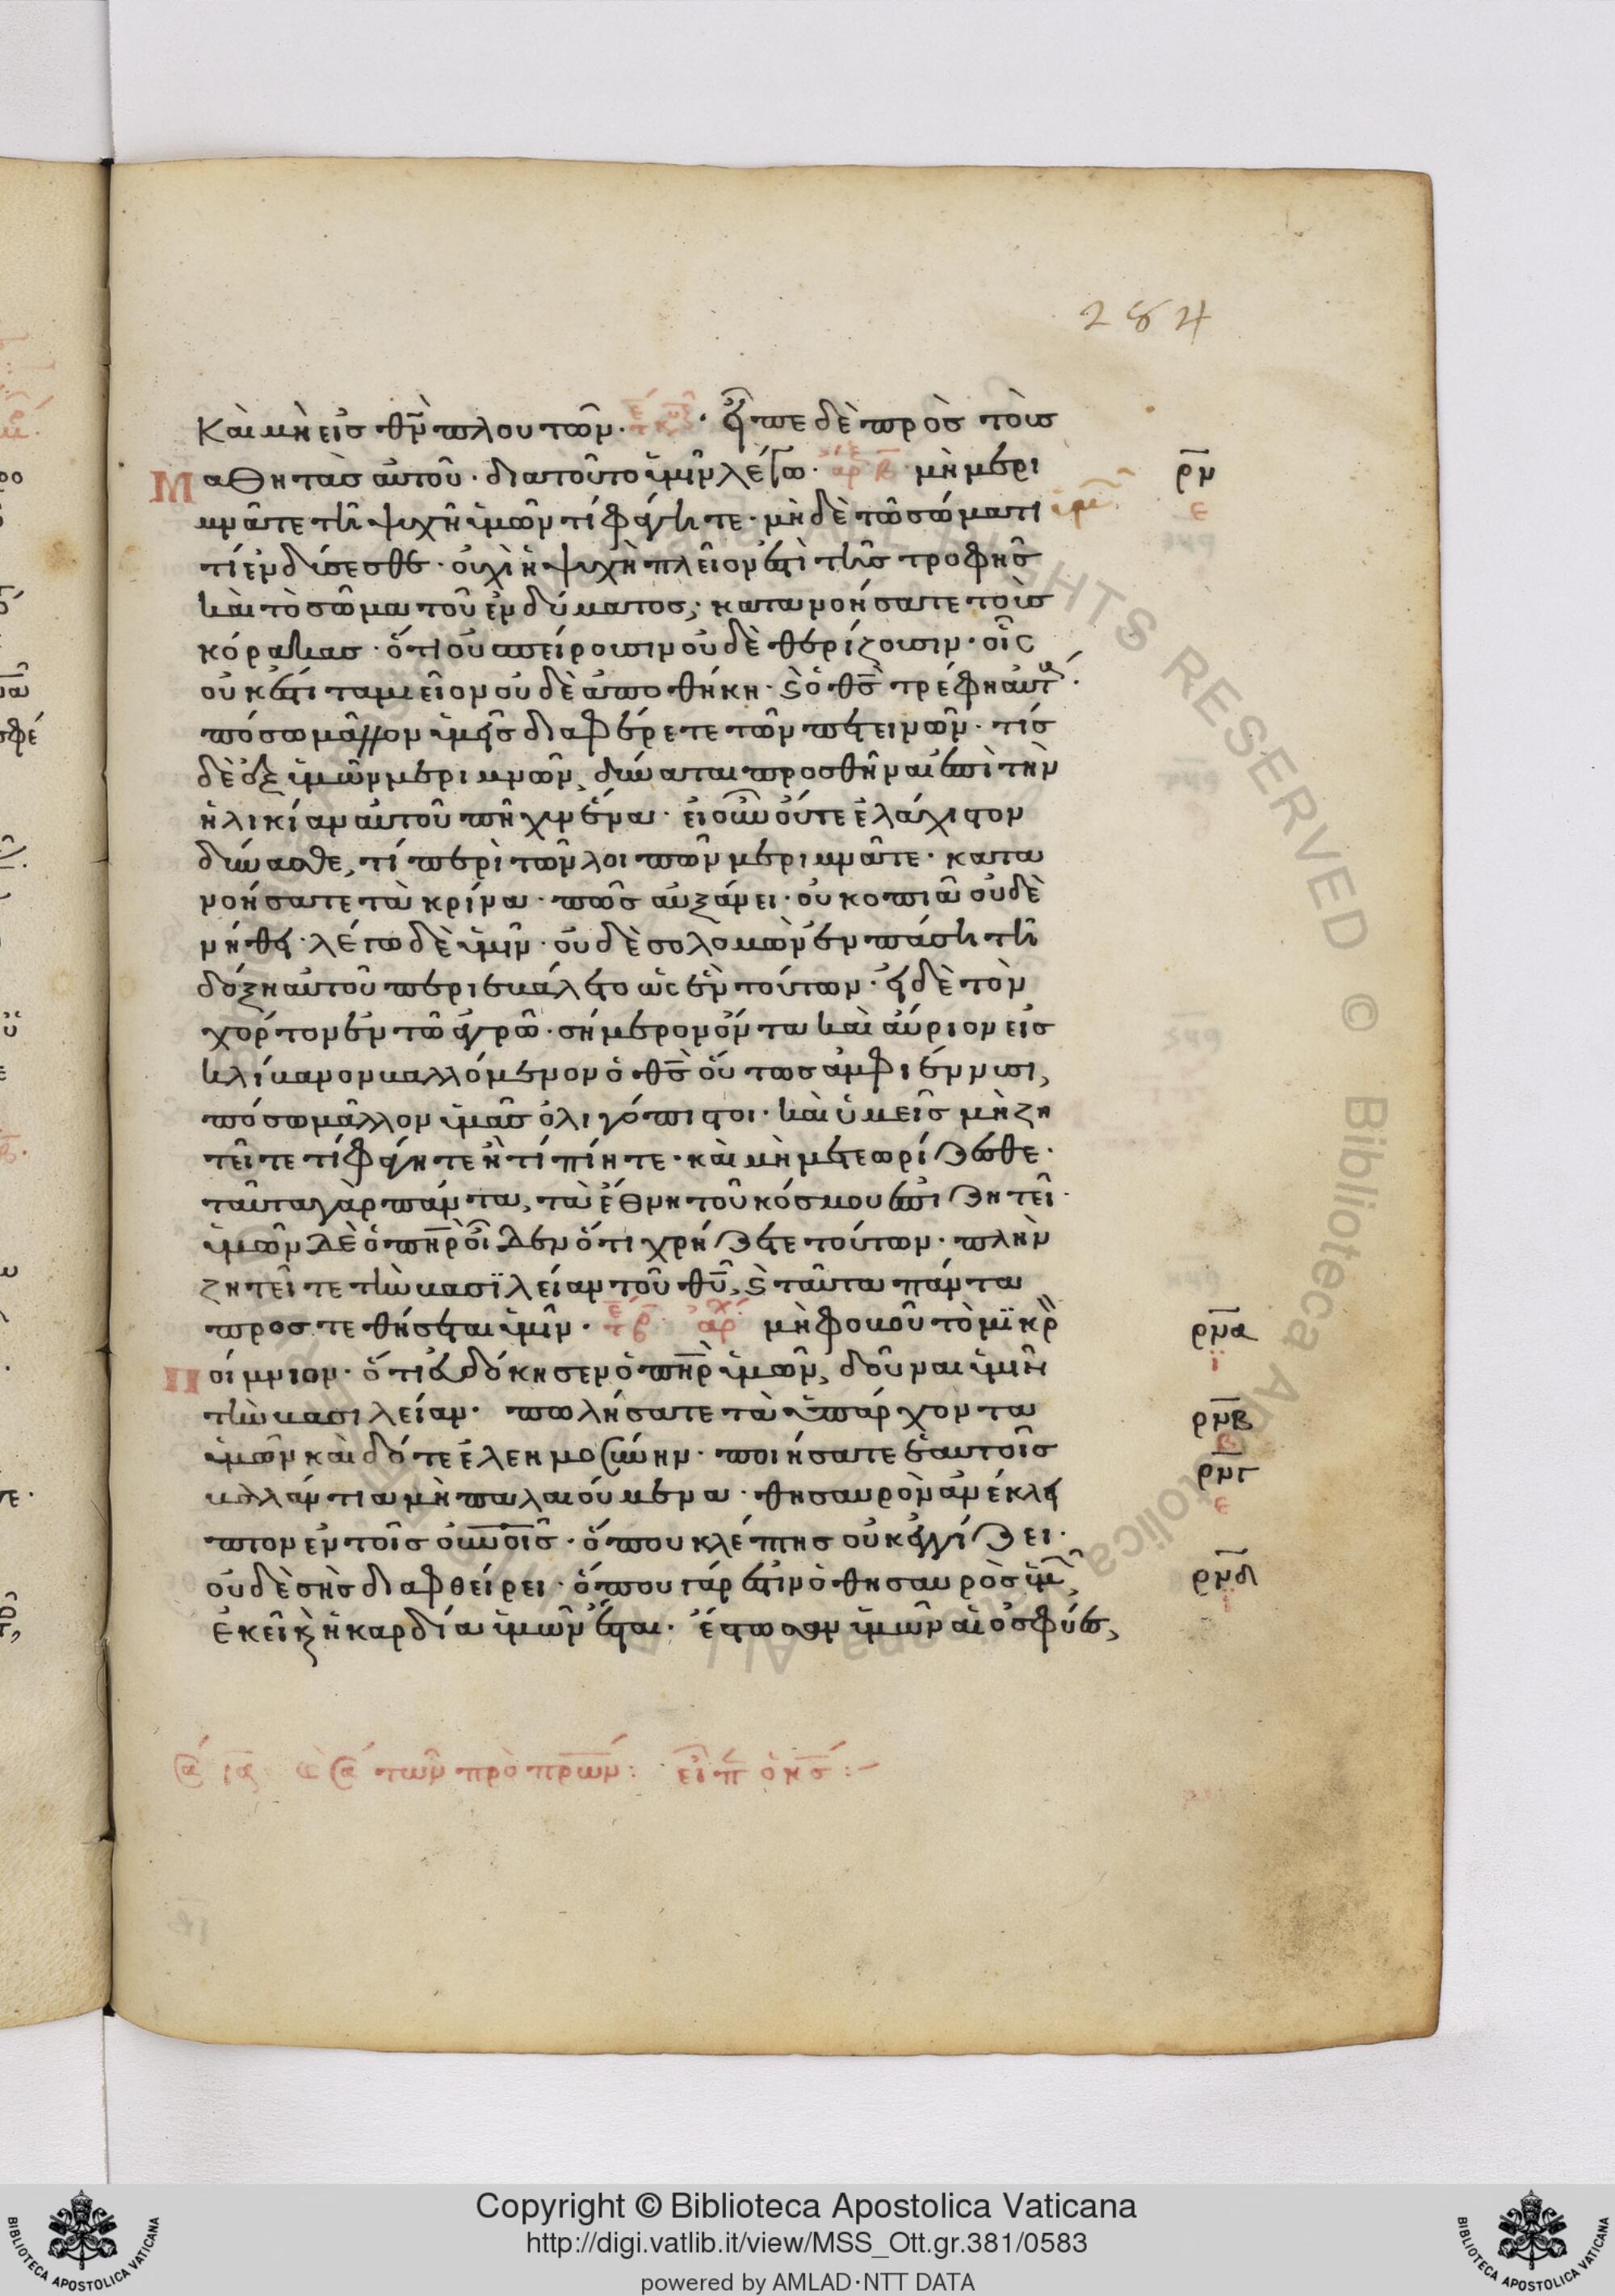 284
καὶ μὴ εἰς θν̅ πλουτῶν· εἶπε δὲ πρὸς τοὺς
μαθητὰς αὐτοῦ· διατοῦτο ὑμῖν λέγω· μὴ μερι
μνᾶτε τῆ ψυχῆ ὑμῶν τί φάγητε· μὴ δὲ τῶ σώματι
τί ἐνδύσεσθε· οὐχὶ ἡ ψυχὴ πλεῖον ἐστὶ τῆς τροφῆς
καὶ τὸ σῶμα τοῦ ἐνδύματος; κατανοήσατε τοὺς
κόρακας· ὅτι οὐ σπείρουσιν οὐδὲ θερίζουσιν· οἷς
οὐκ ἐστὶ ταμιεῖον οὐδὲ ἀποθήκη· ϗ ὁ θς̅ τρέφη αὐτ·
πόσω μᾶλλον ὑμεῖς διαφέρετε τῶν πετεινῶν· τίς
δὲ ἐξ ὑμῶν μεριμνῶν, δύναται προσθῆναι ἐπὶ τὴν
ἡλικίαν αὐτοῦ πῆχυν ἕνα· εἰ οὖν οὔτε ἐλάχιστον
δύνασθε, τί περὶ τῶν λοιπῶν μεριμνᾶτε· κατα
νοήσατε τὰ κρίνα· πῶς αὐξάνει· οὐ κοπιᾶ οὐδὲ
νήθει· λέγω δὲ ὑμῖν· οὐδὲ σολομὼν ἐν πάση τῆ
δόξη αὐτοῦ περιεβάλετο ὡς ἓν τούτων· εἰ δὲ τὸν
χόρτον ἐν τῶ ἀγρῶ· σήμερον ὄντα καὶ αὔριον εἰς
κλίβανον βαλλόμενον ὁ θς̅ οὕτως ἀμφιέννυσι,
πόσω μᾶλλον ὑμᾶς ὀλιγόπιστοι· καὶ ὑμεῖς μὴ ζη
τεῖτε τί φάγητε ἢ τί πίητε· καὶ μὴ μετεωρίζεσθε·
ταῦτα γὰρ πάντα, τὰ ἔθνη τοῦ κόσμου ἐπιζητεῖ·
ὑμῶν δὲ ὁ πηρ̅ οἶδεν ὅτι χρήζετε τούτων· πλὴν
ζητεῖτε τὴν βασϊλείαν τοῦ θυ̅, ϗ ταῦτα πάντα
προστεθήσεται ὑμῖν· μὴ φοβοῦ τὸ μϊκρ
ποίμνιον· ὅτι εὐδόκησεν ὁ πηρ̅ ὑμῶν, δοῦναι ὑμῖν
τὴν βασιλείαν· πωλήσατε τὰ ὑπάρχοντα
ὑμῶν καὶ δότε ἐλεημοσύνην· ποιήσατε ἑαυτοῖς
βαλλάντια μὴ παλαιούμενα· θησαυρὸν ἀνέκλει
πτον ἐν τοῖς οὐνοῖς· ὅπου κλέπτης οὐκ ἐγγίζει·
οὐδὲ σὴς διαφθείρει· ὅπου γάρ ἐστιν ὁ θησαυρὸς ὑμ,
ἐκεῖ ϗ ἡ καρδία ὑμῶν ἔσται· ἔστωσαν ὑμῶν αἱ ὀσφύες,
ρν̅
ε
ρνα̅
ϊ
ρνβ̅
ρνγ̅
ε
ρνδ̅
τῶν προπρων̅: εἶπ ὁ κς̅:-
Copyright © Biblioteca Apostolica Vaticana
http://digi.vatlib.it/view/MSS_Ott.gr.381/0583
powered by AMLAD·NTT DATA
BIBLIOTECA APOSTOLICA VATICANA
BIBLIOTECA APOSTOLICA VATICANA